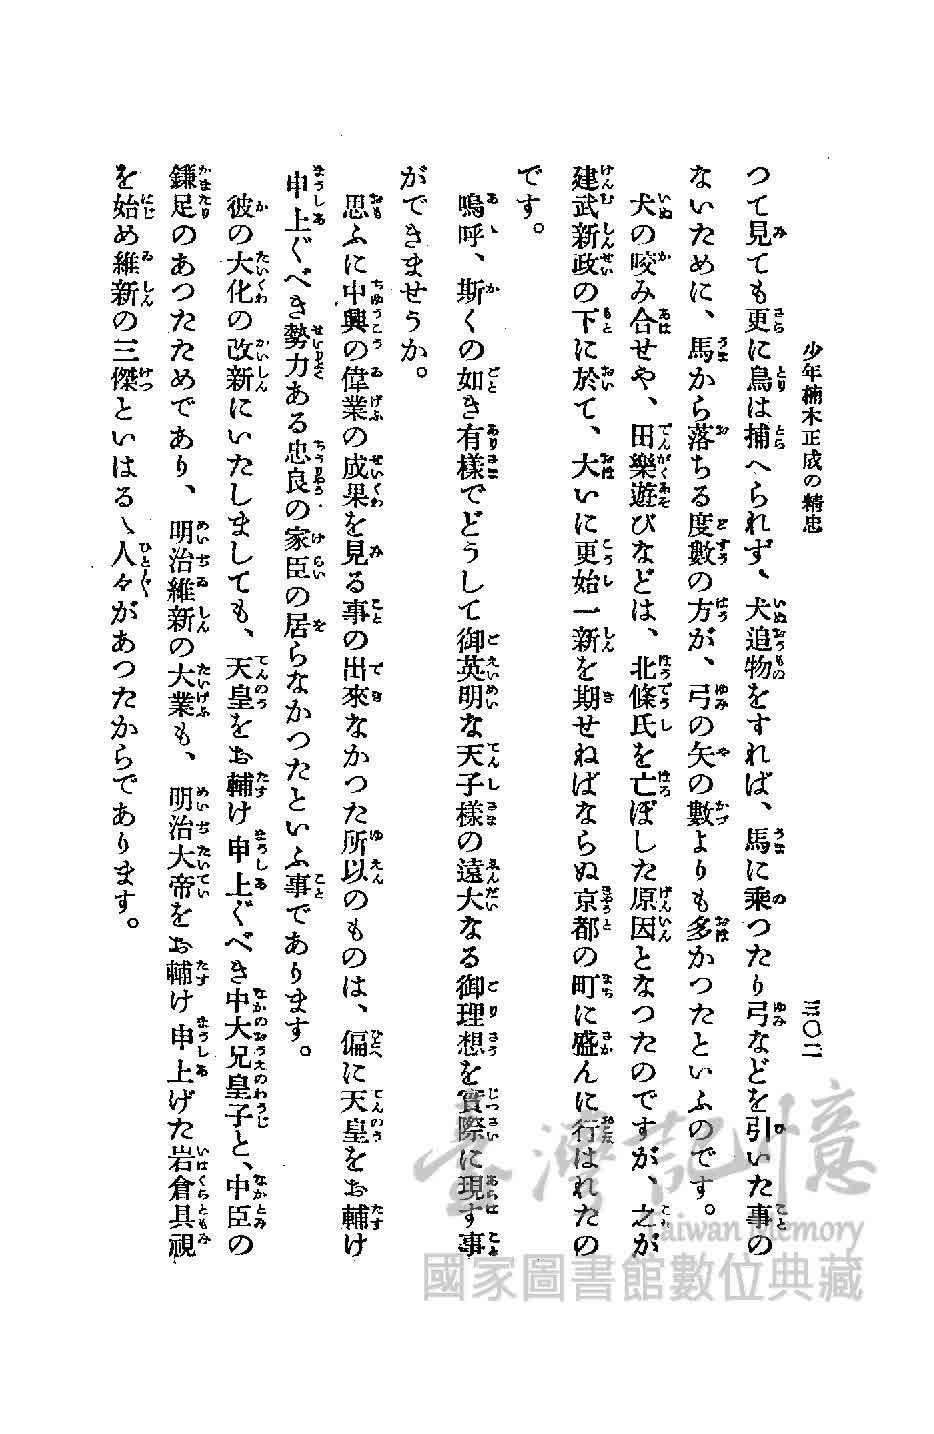 少年楠木正成の精忠
三〇二
つて見ても更に鳥は捕へられず、犬追物をすれば、馬に乘つたり弓などを引いた事の
ないために、馬から落ちる度數の方が、弓の矢の數よりも多かつたといふのです。
犬の咬み合せや、田樂遊びなどは、北條氏を亡ぼした原因となつたのですが、之が
建武新政の下に於て、大いに更始一新を期せねばならぬ京都の町に盛んに行はれたの
です。
嗚呼、斯くの如き有樣でどうして御英明な天子樣の遠大なる御理想を實際に現す事
ができませうか。
思ふに中興の偉業の成果を見る事の出來なかつた所以のものは、偏に天皇をお輔け
申上ぐべき勢力ある忠良の家臣の居らなかつたといふ事であります。
彼の大化の改新にいたしましても、天皇をお輔け申上ぐべき中大兄皇子と、中臣の
鎌足のあつたためであり、明治維新の大業も、明治大帝をお輔け申上げた岩倉具視
を始め維新の三傑といはるゝ人々があつたからであります。
臺灣記憶
Taiwan Memory
國家圖書館數位典藏